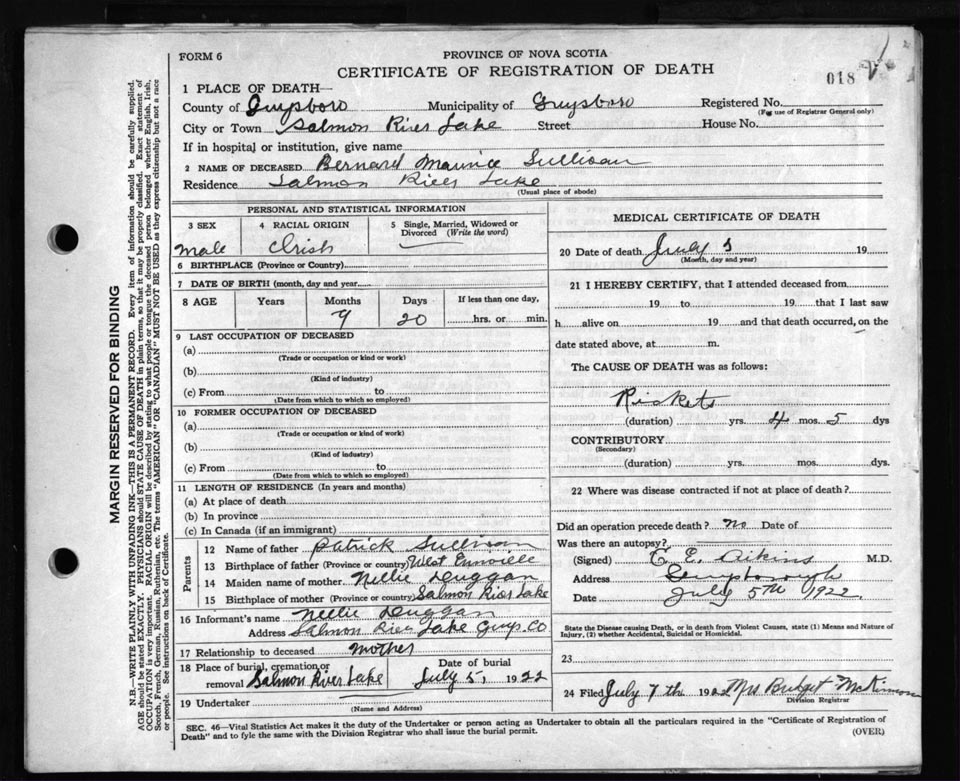 FORM 6
PROVINCE OF NOVA SCOTIA
CERTIFICATE OF REGISTRATION OF DEATH
018
1 PLACE OF DEATH—
County of Guysboro Municipality of Guysboro Registered No.
(For use of Registrar General only)
City or Town Salmon River Lake Street House No.
If in hospital or institution, give name
2 NAME OF DECEASED Bernard Maurice Sullivan
Residence Salmon River Lake
(Usual place of abode)
PERSONAL AND STATISTICAL INFORMATION
3 SEX 4 RACIAL ORIGIN 5 Single, Married, Widowed or Divorced (Write the word)
male Irish
6 BIRTHPLACE (Province or Country)
7 DATE OF BIRTH (month, day and year)
8 AGE Years Months Days If less than one day,
9 20 hrs. or min.
9 LAST OCCUPATION OF DECEASED
(a)
(Trade or occupation or kind or work)
(b)
(Kind of industry)
(c) From to
(Date from which to which so employed)
10 FORMER OCCUPATION OF DECEASED
(a)
(Trade or occupation or kind of work)
(b)
(Kind of industry)
(c) From to
(Date from which to which so employed)
11 LENGTH OF RESIDENCE (In years and months)
(a) At place of death
(b) In province
(c) In Canada (if an immigrant)
Parents
12 Name of father Patrick Sullivan
13 Birthplace of father (Province or country) West
14 Maiden name of mother Nellie Duggan
15 Birthplace of mother (Province or country) Salmon River Lake
16 Informant's name Nellie Duggan
Address Salmon River Lake Guys. Co
17 Relationship to deceased Mother
18 Place of burial, cremation or removal Salmon River Lake Date of burial July 5, 1922
19 Undertaker
(Name and Address)
MEDICAL CERTIFICATE OF DEATH
20 Date of death July 19
(Month, day and year)
21 I HEREBY CERTIFY, that I attended deceased from
19 to 19 that I last saw
h alive on 19 and that death occurred, on the
date stated above, at m.
The CAUSE OF DEATH was as follows:
Rickets
(duration) yrs. 4 mos. 5 dys
CONTRIBUTORY
(Secondary)
(duration) yrs. mos. dys.
22 Where was disease contracted if not at place of death?
Did an operation precede death? no Date of
Was there an autopsy?
(Signed) E. E. Aikins M.D.
Address Guysborough
Date July 5th 1922
State the Disease causing Death, or in death from Violent Causes, state (1) Means and Nature of
Injury, (2) whether Accidental, Suicidal or Homicidal.
23
24 Filed July 7th 1922 Mrs Bridget McKinnon
Division Registrar
SEC. 46—Vital Statistics Act makes it the duty of the Undertaker or person acting as Undertaker to obtain all the particulars required in the "Certificate of Registration of
Death" and to fyle the same with the Division Registrar who shall issue the burial permit.
(OVER)
MARGIN RESERVED FOR BINDING
N.B.—WRITE PLAINLY WITH UNFADING INK—THIS IS A PERMANENT RECORD. Every item of information should be carefully supplied.
AGE should be stated EXACTLY. PHYSICIANS should STATE CAUSE OF DEATH in plain terms, so that it may be properly classified. Exact statement of
OCCUPATION is very important. RACIAL ORIGIN will be described by stating to what people or tongue the deceased person belonged whether English, Irish,
Scotch, French, German, Russian, Ruthenian, etc. The terms "AMERICAN" OR "CANADIAN" MUST NOT BE USED as they express citizenship but not a race
or people. See instructions on back of Certificate.